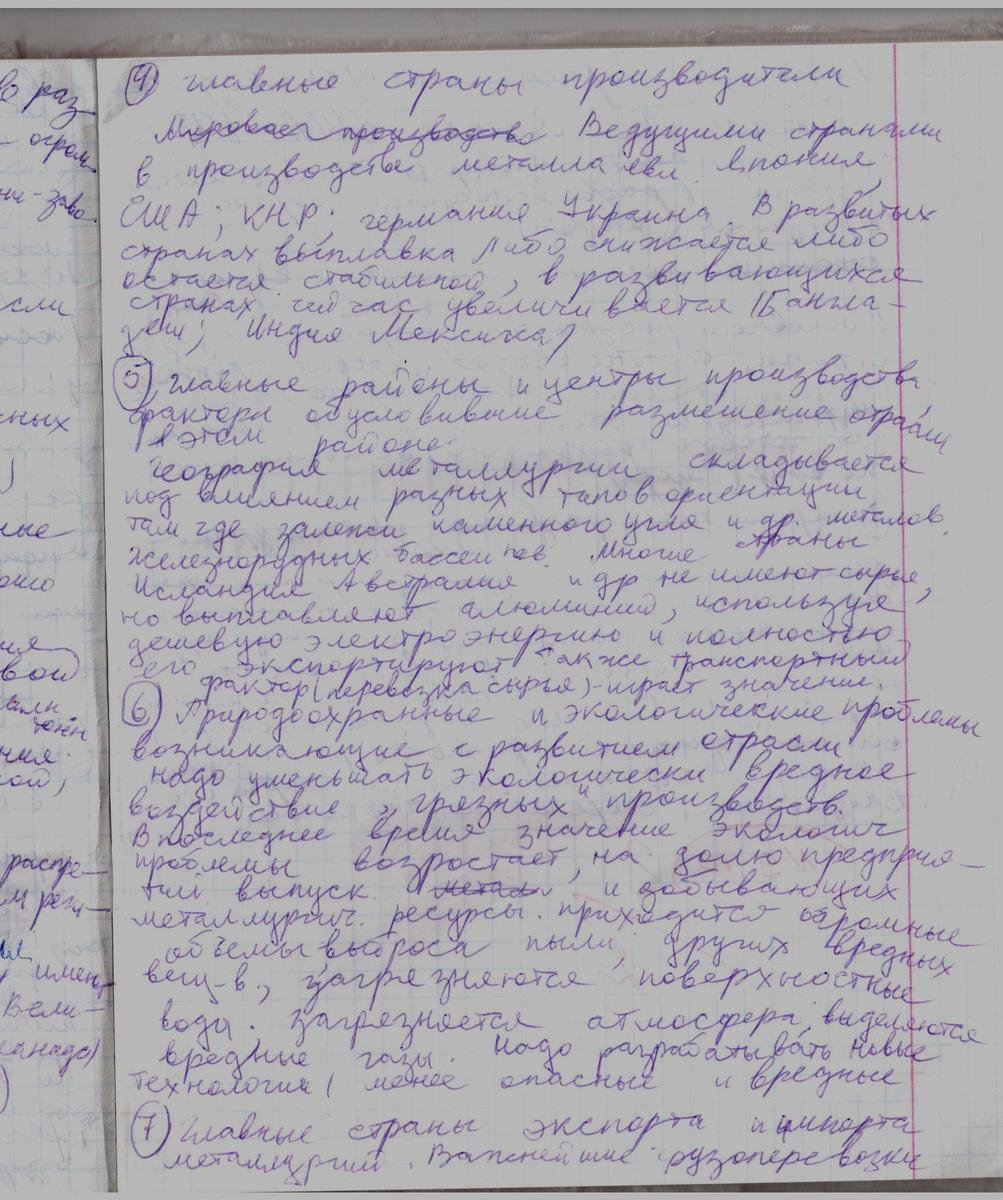 в раз-
огром
ни-заво.
если
сных
)
ные
вой
тонн
чия.
сой,
распре-
м реги-
имеющ
Вели-
Канада)
)
④ главные страны производители
Мировое производство Ведущими странами
в производстве металла явл. Япония,
США; КНР; германия Украина. В развитых
странах выплавка либо снижается либо
остается стабильной, в развивающихся
странах сейчас увеличивается (Бангла-
деш; Индия Мексика)
⑤ главные районы и центры производства
факторы обусловившие размешение отрасли
в этом районе.
География металлургии складывается
под влиянием разных типов ориентации
там где залежи каменного угля и др. металов
железнорудных бассейнов. Многие страны
Исландия Австралия и др не имеют сырье,
но выплавляют алюминий, используя
дешевую электроэнергию и полностью
его экспортируют Также транспортный
фактор (перевозка сырья) - играет значение.
⑥ Природоохранные и экологические проблемы
возникающие с развитием отрасли
надо уменьшать экологически вредное
воздействие „грязных" производств.
В последнее время значение экологич
проблемы возростает, на долю предприя-
тий выпуск. метал и добывающих
металлургич. ресурсы. приходится огромные
объемы выброса пыли, других вредных
вещ-в., загрезняются поверхностные
воды. загрязняется атмосфера, выделяются
вредные газы. Надо разрабатывать новые
технологии (менее опасные и вредные
⑦ Главные страны экспорта и импорта
металлургии. Важнейшие грузоперевозки